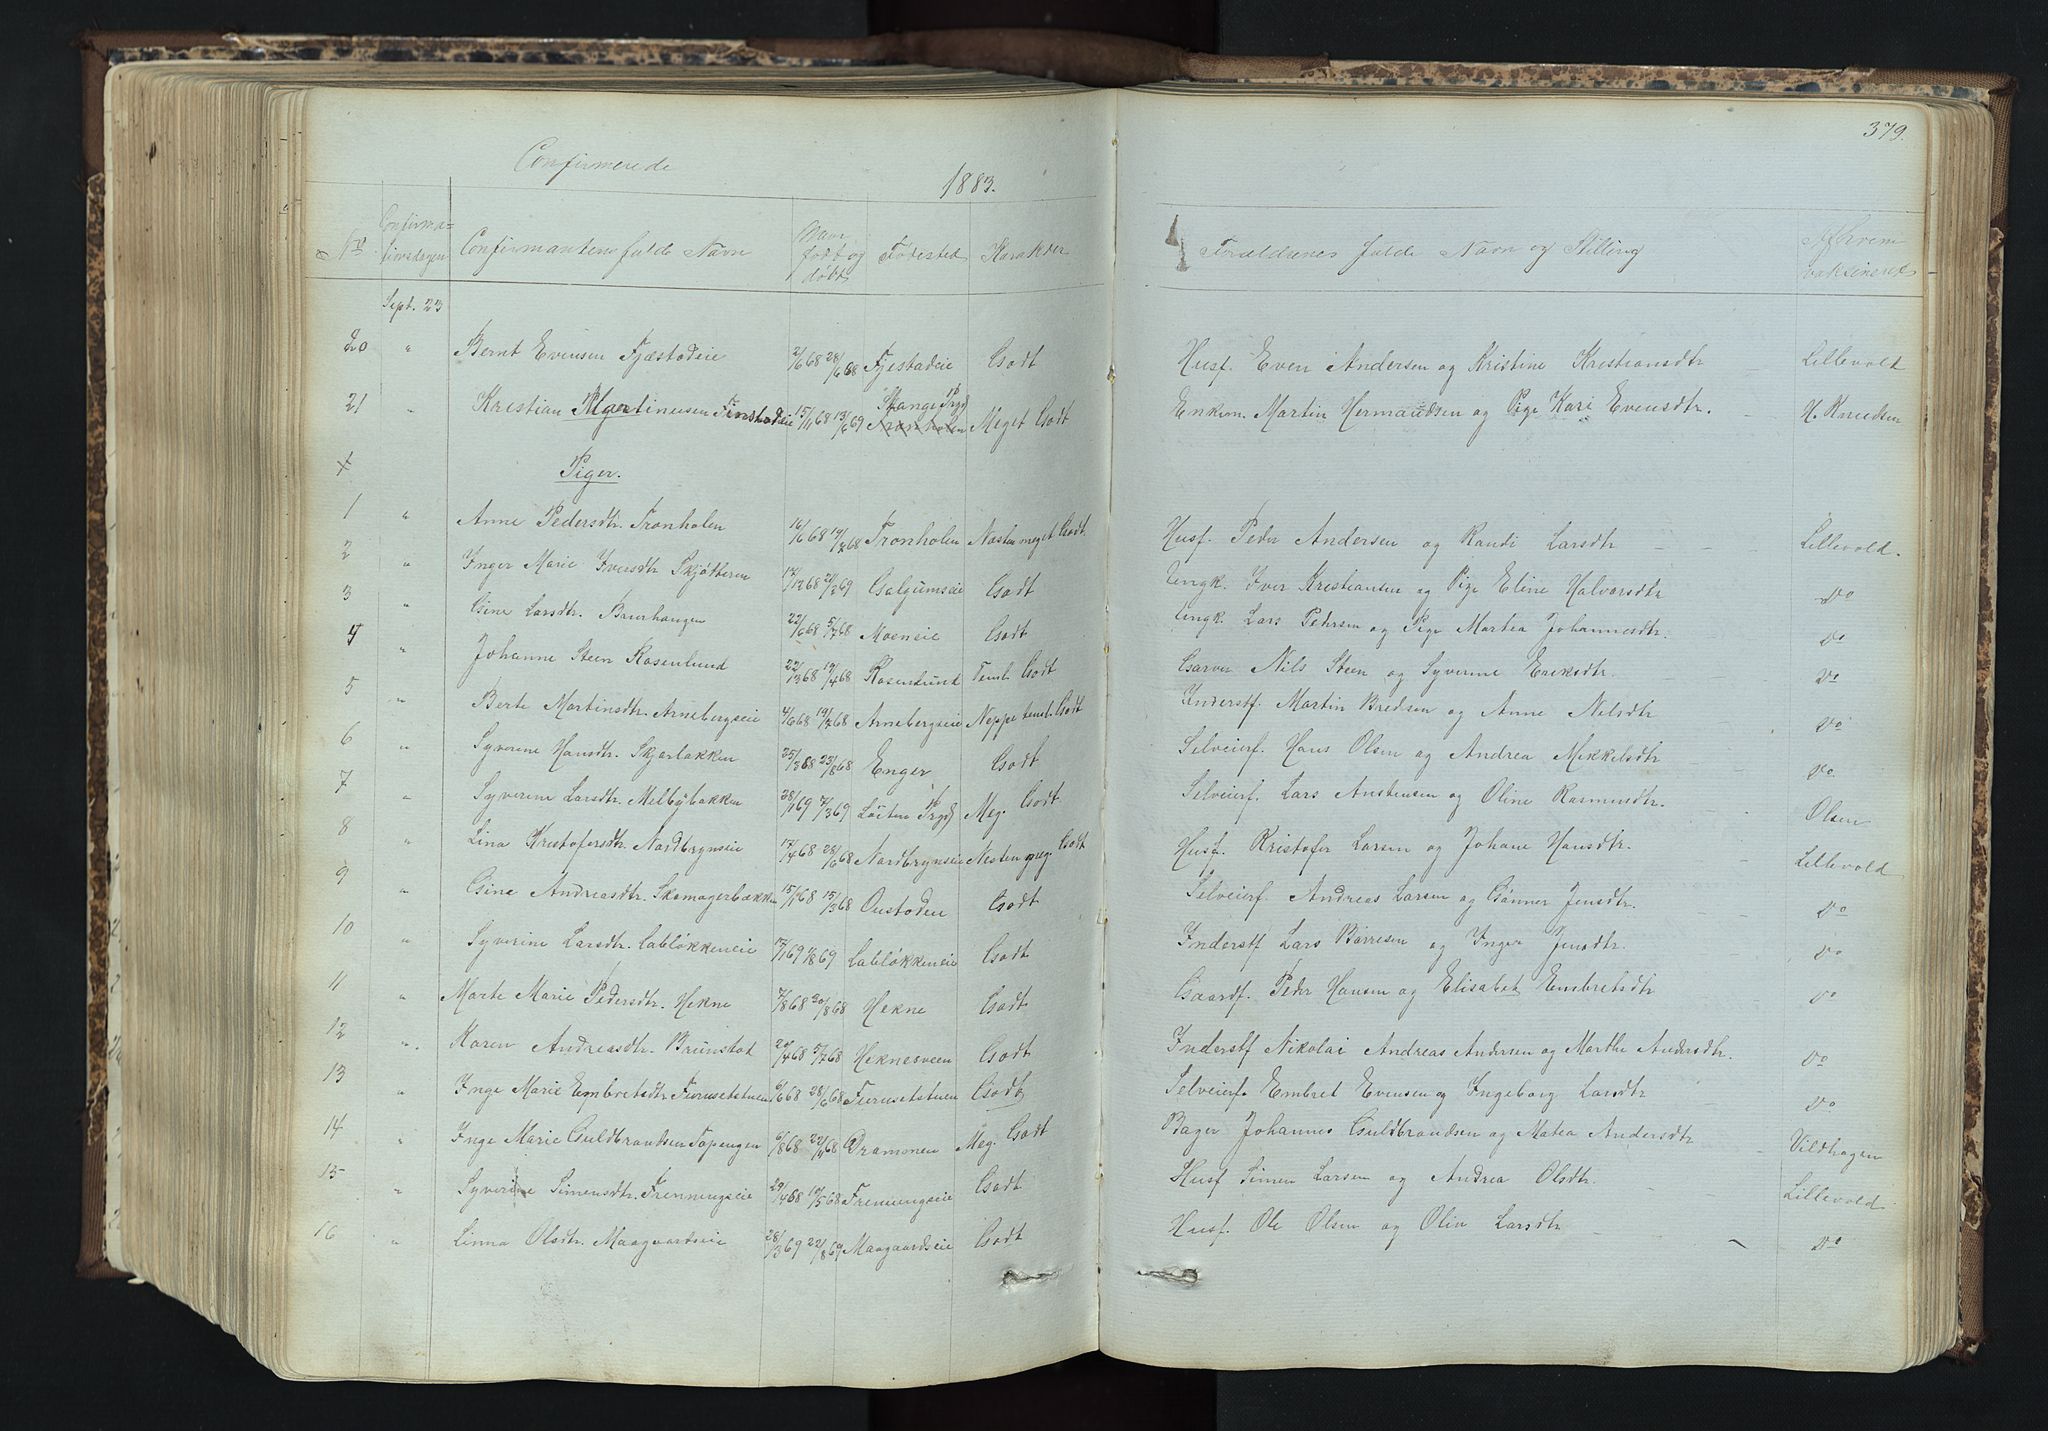 379.
Confirmerede 1883.
No Confirmationsdagen Confirmantens fulde Navn Naar født og døbt Fødested Karakter Forældrenes fulde Navn og Stilling Af hvem vaksineret
Sept. 23
20 " Bernt Evensen Fjæstadeie 2/6 68 28/6 68 Fjestadeie Godt Husf. Even Andersen og Kristine Kristiansdtr Lillevold
21 " Kristian Martinusen Finstadeie 15/11 68 13/6 69 Stange Prgd Meget Godt Enkem. Martin Hermandsen og Pige Kari Evensdtr. H. Knudsen
+ Piger.
1 " Anne Pedersdtr. Tronholen 16/6 68 19/7 68 Tronholen Næsten meget Godt. Husf. Peder Andersen og Randi Larsdtr Lillevold.
2 " Inger Marie Iversdtr Skjøtteren 17/12 68 21/2 69 Galgumseie Godt Ungk. Iver Kristiansen og Pige Eline Halvorsdtr Do
3 " Gine Larsdtr. Baurhaugen 22/6 68 5/7 68 Moeneie Godt Ungk. Lars Pedersen og Pige Martea Johannesdtr. Do
4 " Johanne Steen Rosenlund 22/3 68 19/4 68 Rosenlund Teml. Godt Garver Nils Steen og Syverine Eriksdtr. Do
5 " Berte Martinsdtr. Arnebergseie 4/6 68 19/7 68 Arnebergseie Neppe teml. Godt Inderstf. Martin Bredsen og Anne Nilsdtr Do
6 " Syverine Hansdtr. Skjærbakken 25/7 68 23/8 68 Enger Godt Selveierf. Hans Olsen og Andrea Mikkelsdtr Do.
7 " Syverine Larsdtr. Melbybakken 28/1 69 7/3 69 Løiten Prgd Meg. Godt Selveierf. Lars Austensen og Oline Rasmusdtr. Olsen
8 " Lina Kristofersdtr. Nordbrynseie 17/4 68 28/6 68 Nordbrynseie Nesten meg. Godt Husf. Kristofer Larsen og Johane Hansdtr. Lillevold
9 " Gine Andreasdtr. Skomagerbakken 15/1 68 15/3 68 Oustaden Godt Selveierf. Andreas Larsen og Gunner Jensdtr. Do
10 " Syverine Larsdtr. Labløkkeneie 17/1 69 1/8 69 Labløkkeneie Godt Inderstf Lars Børresen og Inger Jensdtr. Do
11 " Marte Marie Pedersdtr. Hekne 7/8 68 30/8 68 Hekne Godt Gaardf. Peder Hansen og Elisabet Embretsdtr Do
12 " Karen Andreasdtr. Brunstad 20/4 68 5/7 68 Heknesveen Godt Inderstf Nikolai Andreas Andersen og Marthe Andersdtr. Do
13 " Inge Marie Embretsdtr Furusetstuen 6/6 68 28/6 68 Furusetstuen Godt Selveierf. Embret Evensen og Ingeborg Larsdtr Do
14 " Inge Marie Guldbrandsen Topengen 6/8 68 22/11 68 Dramonen Meg. Godt Bager Johannes Guldbrandsen og Matea Andersdtr Vildhagen
15 " Syverine Simensdtr. Frenningseie 29/4 68 10/5 68 Frenningseie Godt Husf Simen Larsen og Andrea Olsdtr. Lillevold
16 " Linna Olsdtr. Maagaardseie 28/3 69 22/8 69 Maagaardseie Godt Husf. Ole Olsen og Oliv Larsdtr Do